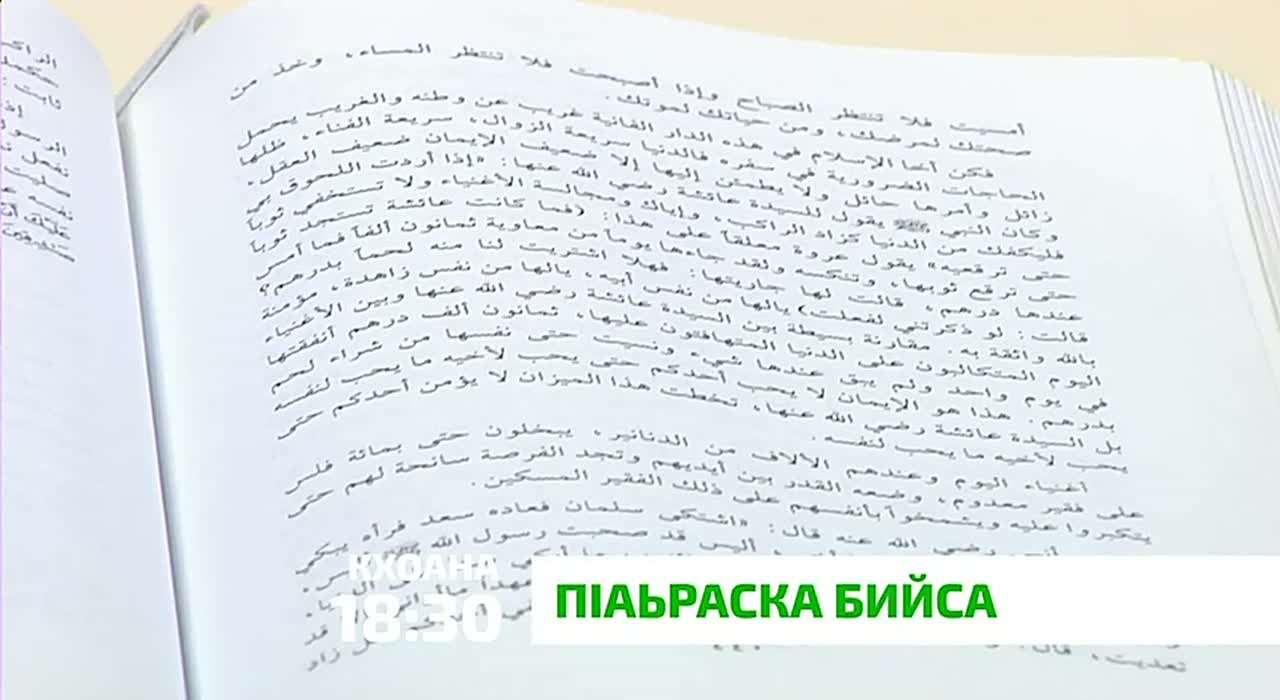 أمسيت فلا تنتظر الصباح وإذا أصبحت فلا تنتظر المساء، وخذ من
صحتك لمرضك، ومن حياتك لموتك.
فكن أخا الإسلام في هذه الدار الفانية غريب عن وطنه والغريب يحمل
الحاجات الضرورية في سفره فالدنيا سريعة الزوال، سريعة الفناء، ظلها
زائل وأمرها حائل ولا يطمئن إليها إلا ضعيف الإيمان ضعيف العقل.
وكان النبي ﷺ يقول للسيدة عائشة رضي الله عنها: «إذا أردت اللحوق بي
فليكفك من الدنيا كزاد الراكب، وإياك ومجالسة الأغنياء ولا تستخفي ثوباً
حتى ترقعيه» يقول عروة معلقاً على هذا: (فما كانت عائشة تستجد ثوباً
حتى ترقع ثوبها، وتنكسه ولقد جاءها يوماً من معاوية ثمانون ألفاً فما أمسى
عندها درهم، قالت لها جاريتها: فهلا اشتريت لنا منه لحماً بدرهم؟
قالت: لو ذكرتني لفعلت) يالها من نفس أبيه، يالها من نفس زاهدة، مؤمنة
بالله واثقة به. مقارنة بسيطة بين السيدة عائشة رضي الله عنها وبين الأغنياء
اليوم المتكالبون على الدنيا المتهافتون عليها، ثمانون ألف درهم أنفقتها
في يوم واحد ولم يبق عندها شيء ونسيت حتى نفسها من شراء لحم
بدرهم. هذا هو الإيمان لا يحب أحدكم حتى يحب لأخيه ما يحب لنفسه
بل السيدة عائشة رضي الله عنها، تخطت هذا الميزان لا يؤمن أحدكم حتى
يحب لأخيه ما يحب لنفسه.
أغنياء اليوم وعندهم الآلاف من الدنانير، يبخلون حتى بمائة فلس
على فقير معدوم، وضعه القدر بين أيديهم وتجد الفرصة سانحة لهم حتى
يتكبروا عليه ويشمخوا بأنفسهم على ذلك الفقير المسكين.
رضي الله عنه قال: «اشتكى سلمان فعاده سعد فرآه يبكي
أليس قد صحبت رسول الله ﷺ
КХОАНА
18:30
ПІАЬРАСКА БИЙСА